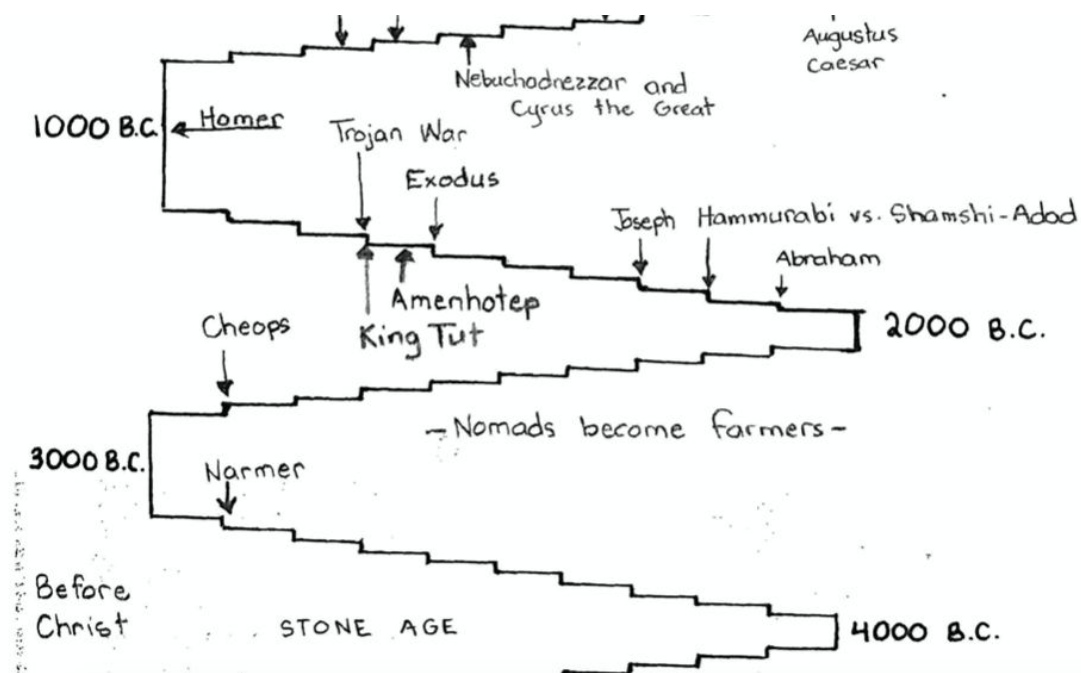 Augustus
Caesar
Nebuchodnezzar and
Cyrus the Great
1000 B.C.
Homer
Trojan War
Exodus
Joseph
Hammurabi vs. Shamshi-Adad
Abraham
Amenhotep
King Tut
Cheops
2000 B.C.
-Nomads become farmers-
3000 B.C.
Narmer
Before
Christ
STONE AGE
4000 B.C.